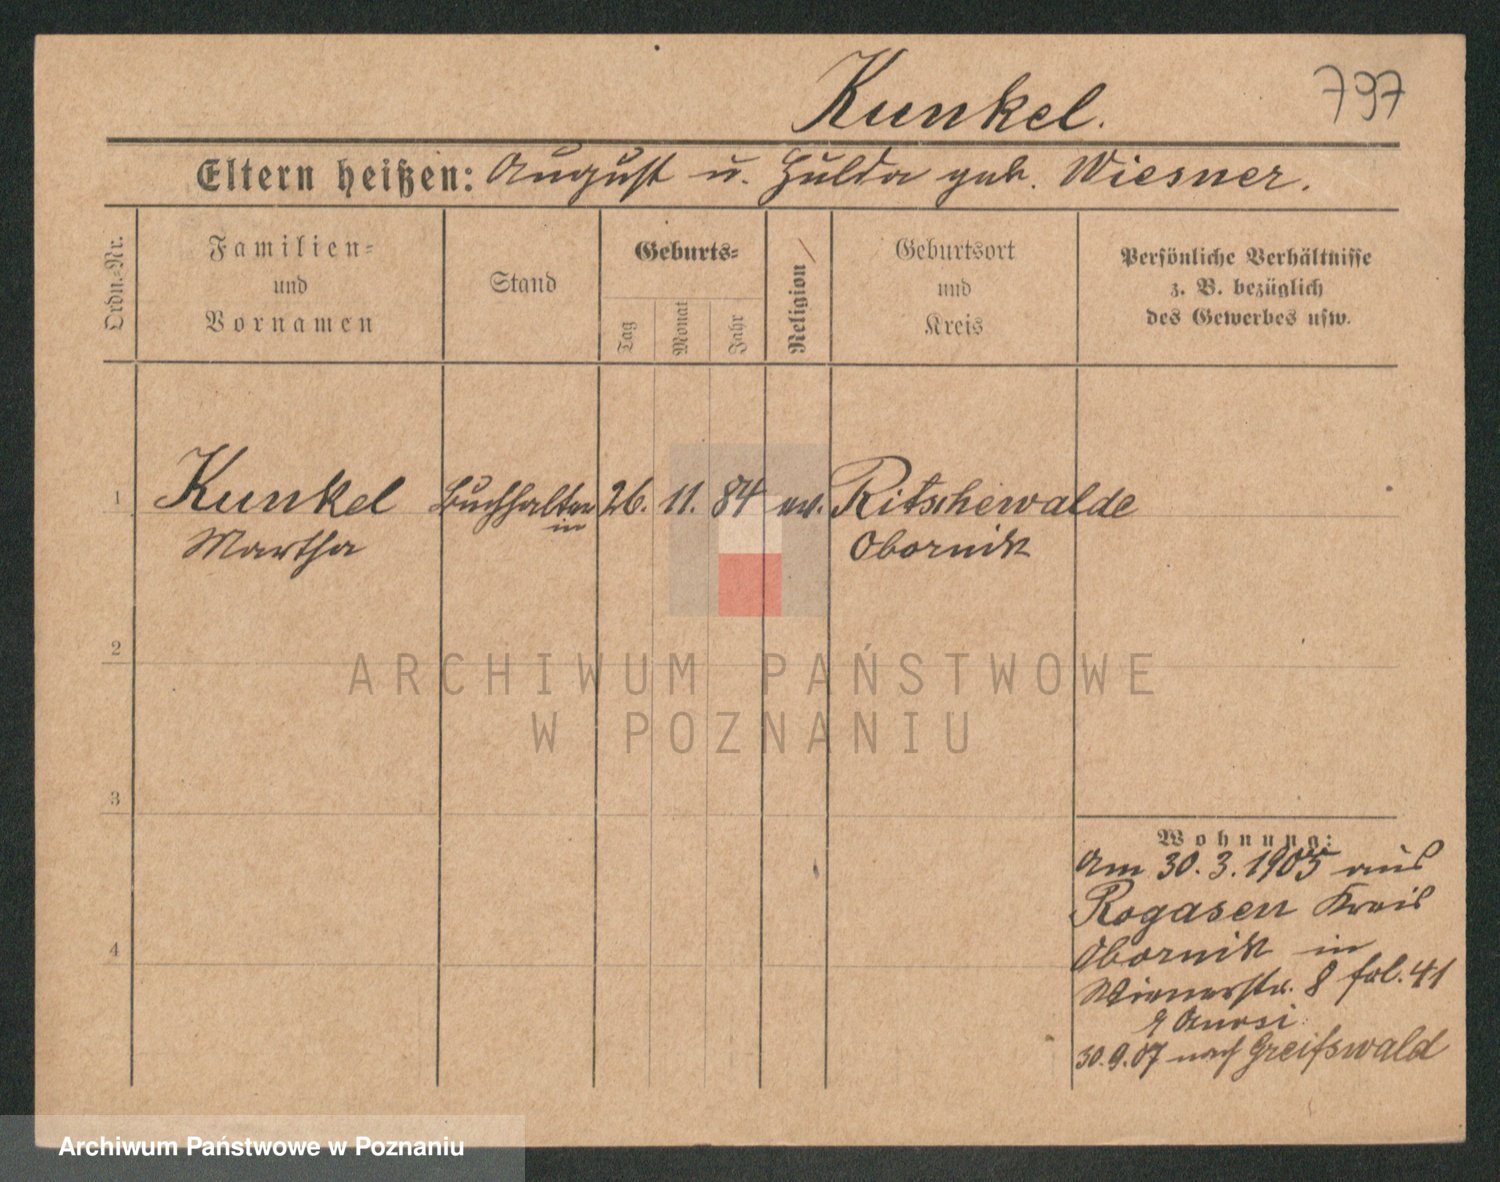 797
Kunkel.
Eltern heißen: August u. Hulda geb. Wiesner.
Ordn.-Nr.
Familien-
und
Vornamen
Stand
Geburts-
Tag
Monat
Jahr
Religion
Geburtsort
und
Kreis
Persönliche Verhältnisse
z. B. bezüglich
des Gewerbes usw.
1 Kunkel Buchhalter 26. 11. 84 ev. Ritschewalde
in
Martha Obornik
2
ARCHIWUM PAŃSTWOWE
W POZNANIU
3
Wohnung:
Am 30.3.1905 aus
Rogasen Kreis
4 Obornik in
Wienerstr. 8 fol. 41
30.9.07 nach Greifswald
Archiwum Państwowe w Poznaniu